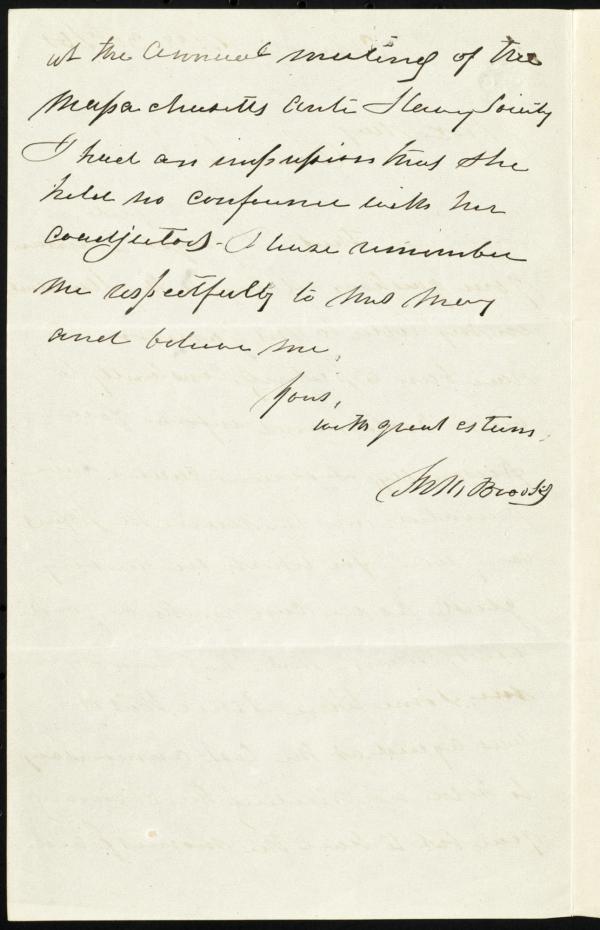 at the annual meeting of the
Massachusetts Anti Slavery Society
I had an impression that she
held no conference with her
coadjutors. Please remember
me respectfully to Mrs May
and believe me,
yours,
with great esteem,
M M Brooks